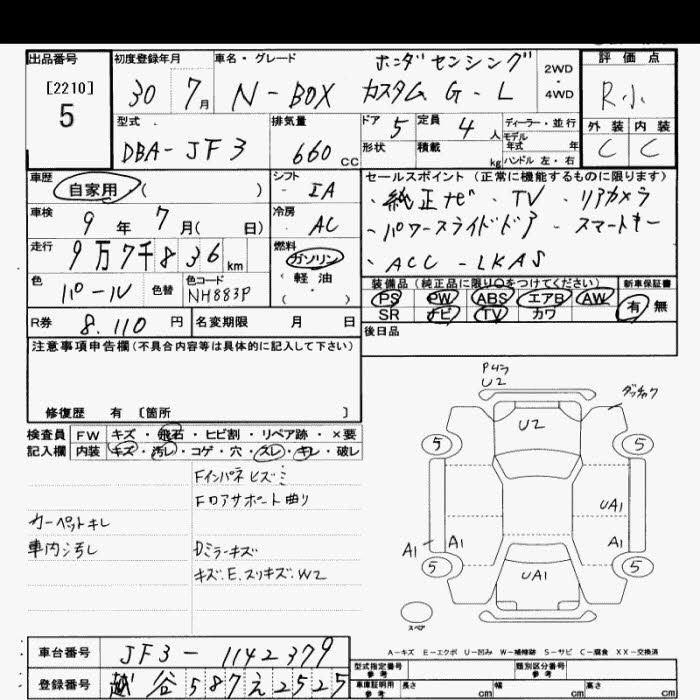 出品番号
[2210]
5
初度登録年月
30 7月
車名・グレード
ホンダセンシング
N-BOX カスタム G・L
2WD
・
4WD
評価点
R小
外装 内装
C C
型式
DBA-JF3
排気量
660 CC
ドア 5
定員 4 人
形状
積載 kg
ディーラー・並行
モデル
年式 年
ハンドル 左・右
車歴
自家用 ( )
シフト
IA
車検
9 年 7 月( 日)
冷房
AC
走行
9万7千836 km
燃料
ガソリン
軽油
( )
色
パール
色替
色コード
NH883P
R券 8,110 円
名変期限 月 日
セールスポイント(正常に機能するものに限ります)
・純正ナビ ・TV ・リアカメラ
・パワースライドドア ・スマートキー
・ACC ・LKAS
装備品(純正品に限り○をつけてください)
新車保証書
PS PW ABS エアB AW
SR ナビ TV カワ
有 無
後日品
注意事項申告欄(不具合内容等は具体的に記入して下さい)
修復歴 有 〔箇所 〕
検査員
記入欄
FW キズ・飛石・ヒビ割・リペア跡・×要
内装 キズ・汚レ・コゲ・穴・スレ・キレ・破レ
Fインパネ ヒズミ
Fロアサポート曲り
カーペットキレ
車内汚れ
Dミラーキズ
キズ.E.スリキズ.W2
U2
U2
5 5
UA1
A1 A1 A1
5 5
UA1
スペア
A-キズ E-エクボ U-凹み W-補修跡 S-サビ C-腐食 XX-交換済
車台番号 JF3-1142379
登録番号 越谷587え2525
型式指定番号
参考
類別区分番号
参考
車庫証明用
参考
長さ cm 幅 cm 高さ cm